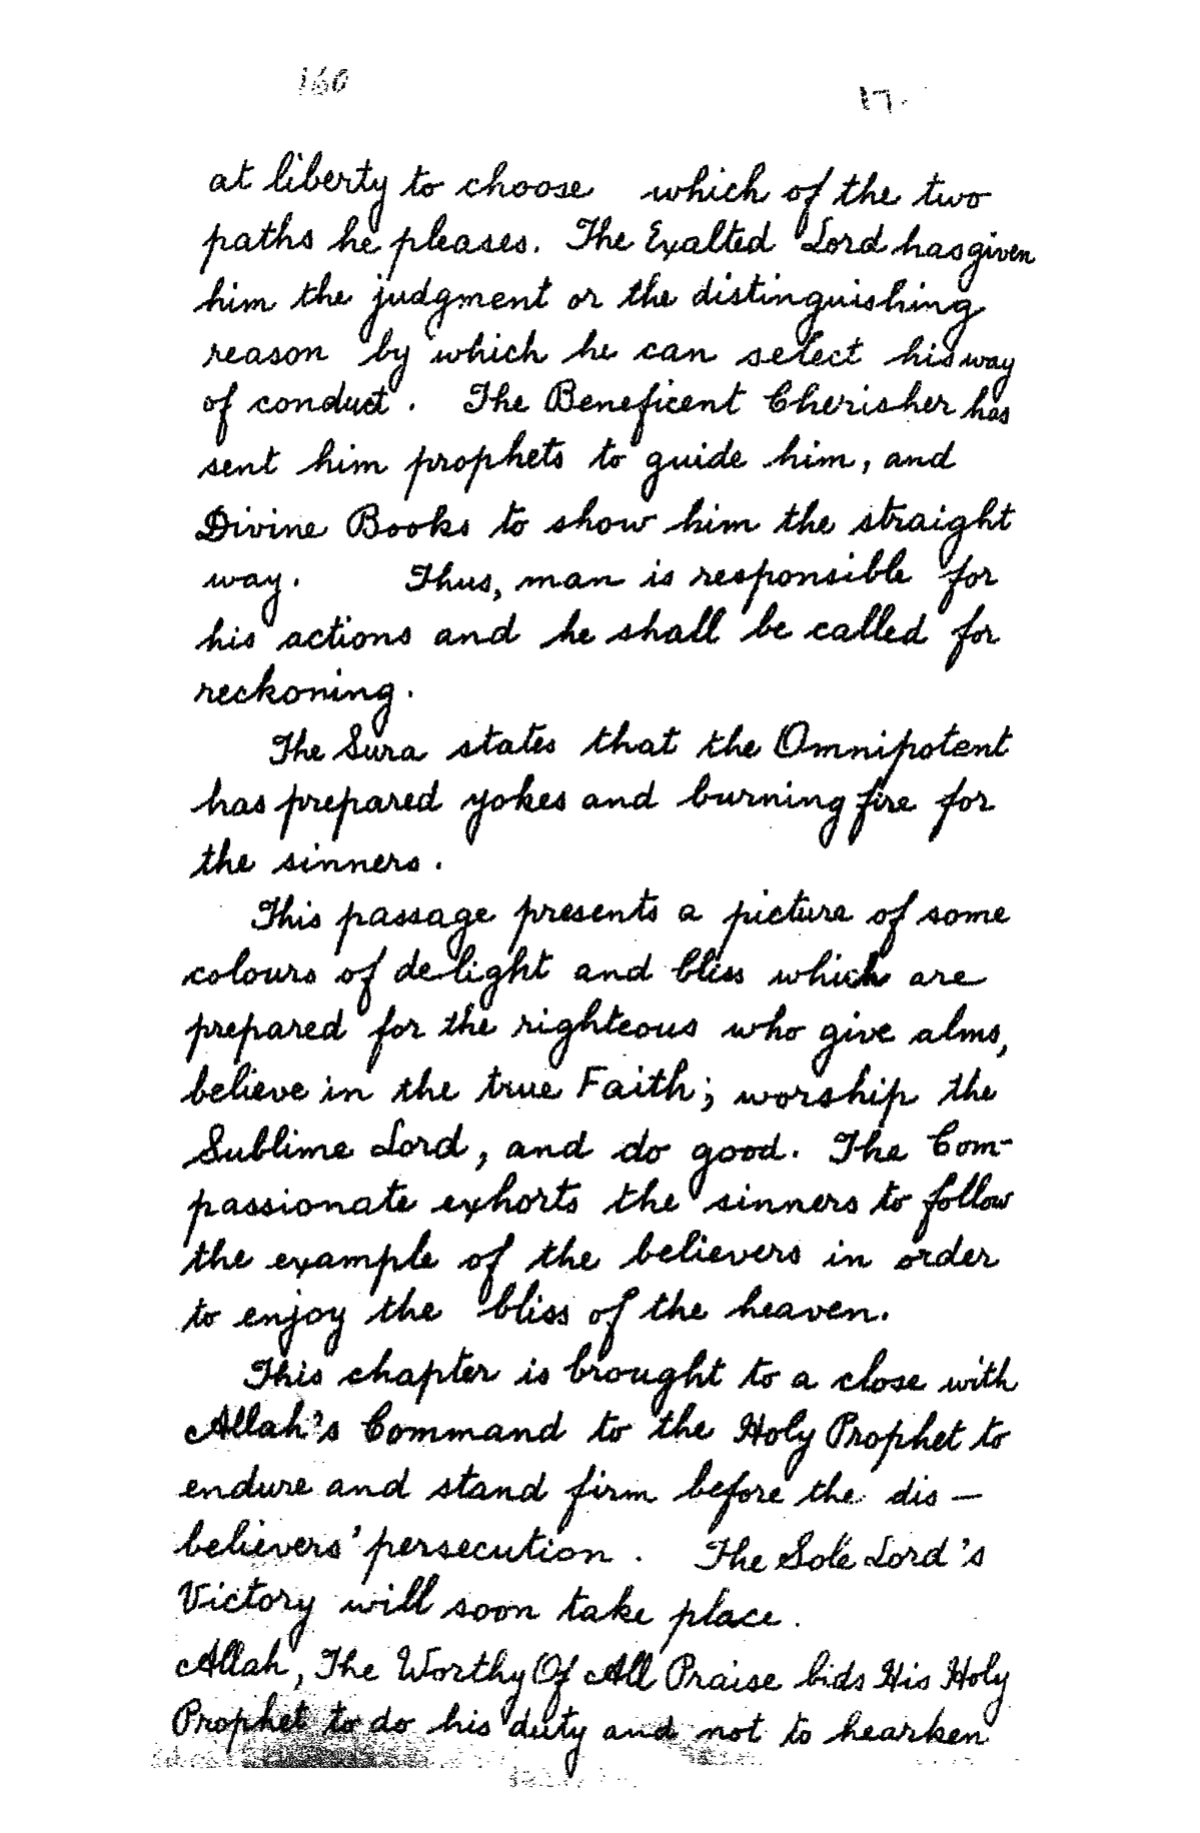 160
17.
at liberty to choose which of the two
paths he pleases. The Exalted Lord has given
him the judgment or the distinguishing
reason by which he can select his way
of conduct. The Beneficent Cherisher has
sent him prophets to guide him, and
Divine Books to show him the straight
way. Thus, man is responsible for
his actions and he shall be called for
reckoning.
The Sura states that the Omnipotent
has prepared yokes and burning fire for
the sinners.
This passage presents a picture of some
colours of delight and bliss which are
prepared for the righteous who give alms,
believe in the true Faith; worship the
Sublime Lord, and do good. The Com-
passionate exhorts the sinners to follow
the example of the believers in order
to enjoy the bliss of the heaven.
This chapter is brought to a close with
Allah's Command to the Holy Prophet to
endure and stand firm before the dis-
believers' persecution. The Sole Lord's
Victory will soon take place.
Allah, The Worthy Of All Praise bids His Holy
Prophet to do his duty and not to hearken